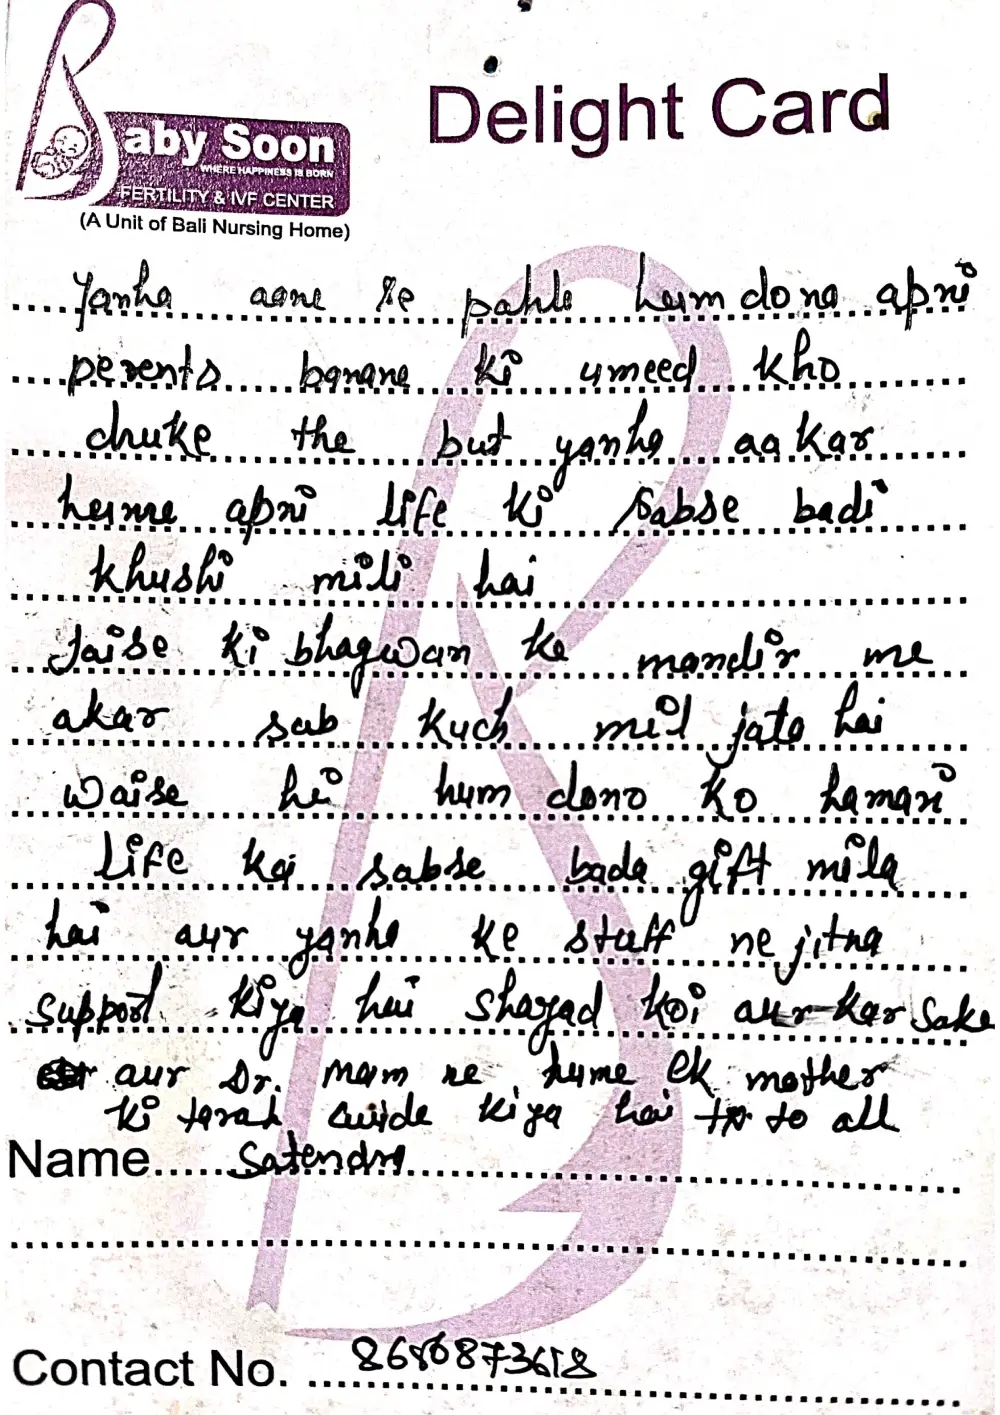 Baby Soon
WHERE HAPPINESS IS BORN
FERTILITY & IVF CENTER
(A Unit of Bali Nursing Home)
Delight Card
Yanha aane se pahle hum dono apni
perents banane ki umeed kho
chuke the but yanha aakar
humne apni life ki sabse badi
khushi mili hai
Jaise ki bhagwan ke mandir me
akar sab kuch mil jata hai
Waise hi hum dono ko hamari
Life ka sabse bada gift mila
hai aur yanha ke staff ne jitna
support kiya hai shayad koi aur kar sake
aur Dr. mam ne hume ek mother
ki tarah Guide kiya hai to all
Name Satendra
Contact No.